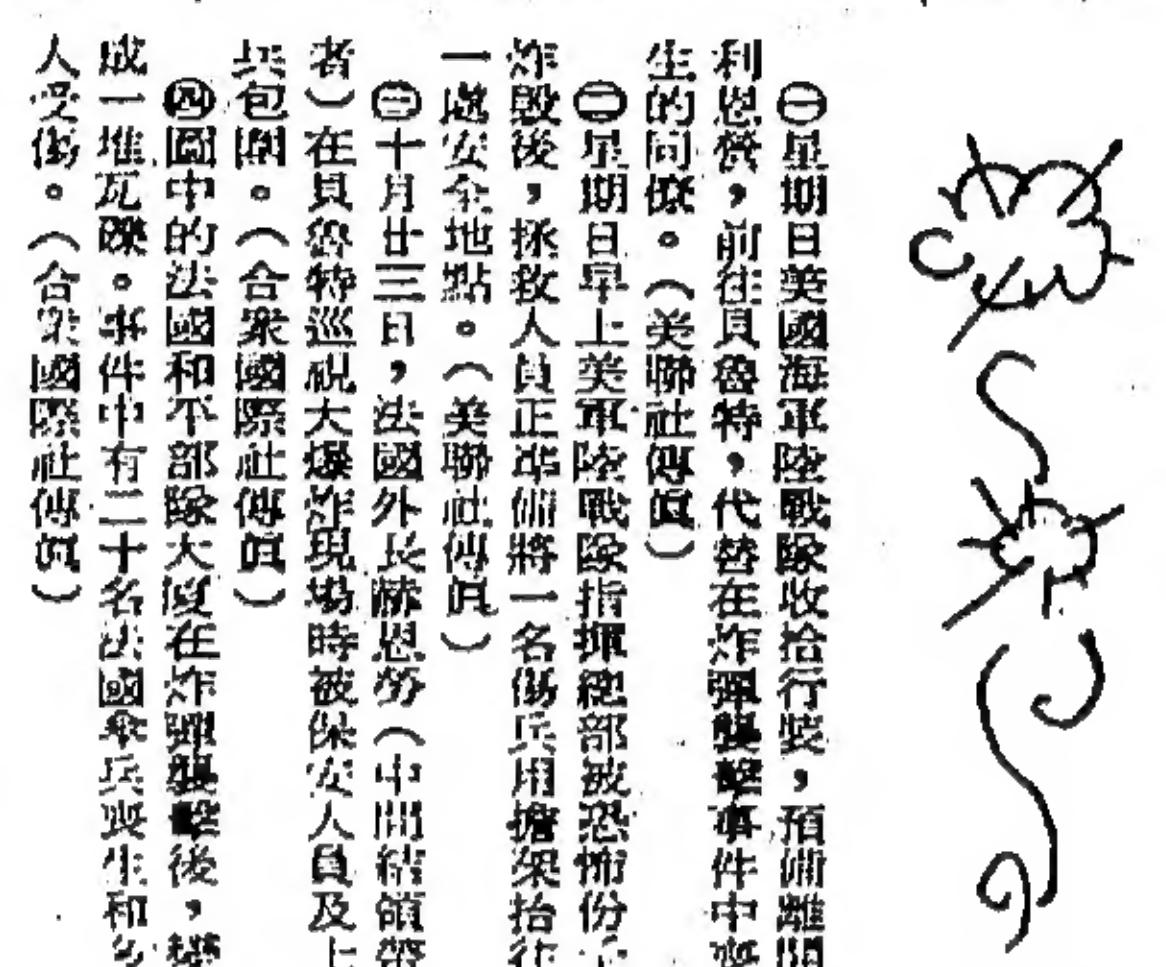 ㊀星期日美國海軍陸戰隊收拾行裝，預備離開
利恩營，前往貝魯特，代替在炸彈襲擊事件中喪
生的同僚。（美聯社傳眞）
㊁星期日早上美軍陸戰隊指揮總部被恐怖份子
炸毀後，拯救人員正準備將一名傷兵用擔架抬往
一處安全地點。（美聯社傳眞）
㊂十月廿三日，法國外長赫恩勞（中間結領帶
者）在貝魯特巡視大爆炸現場時被保安人員及士
兵包圍。（合衆國際社傳眞）
㊃圖中的法國和平部隊大廈在炸彈襲擊後，變
成一堆瓦礫。事件中有二十名法國傘兵喪生和多
人受傷。（合衆國際社傳眞）